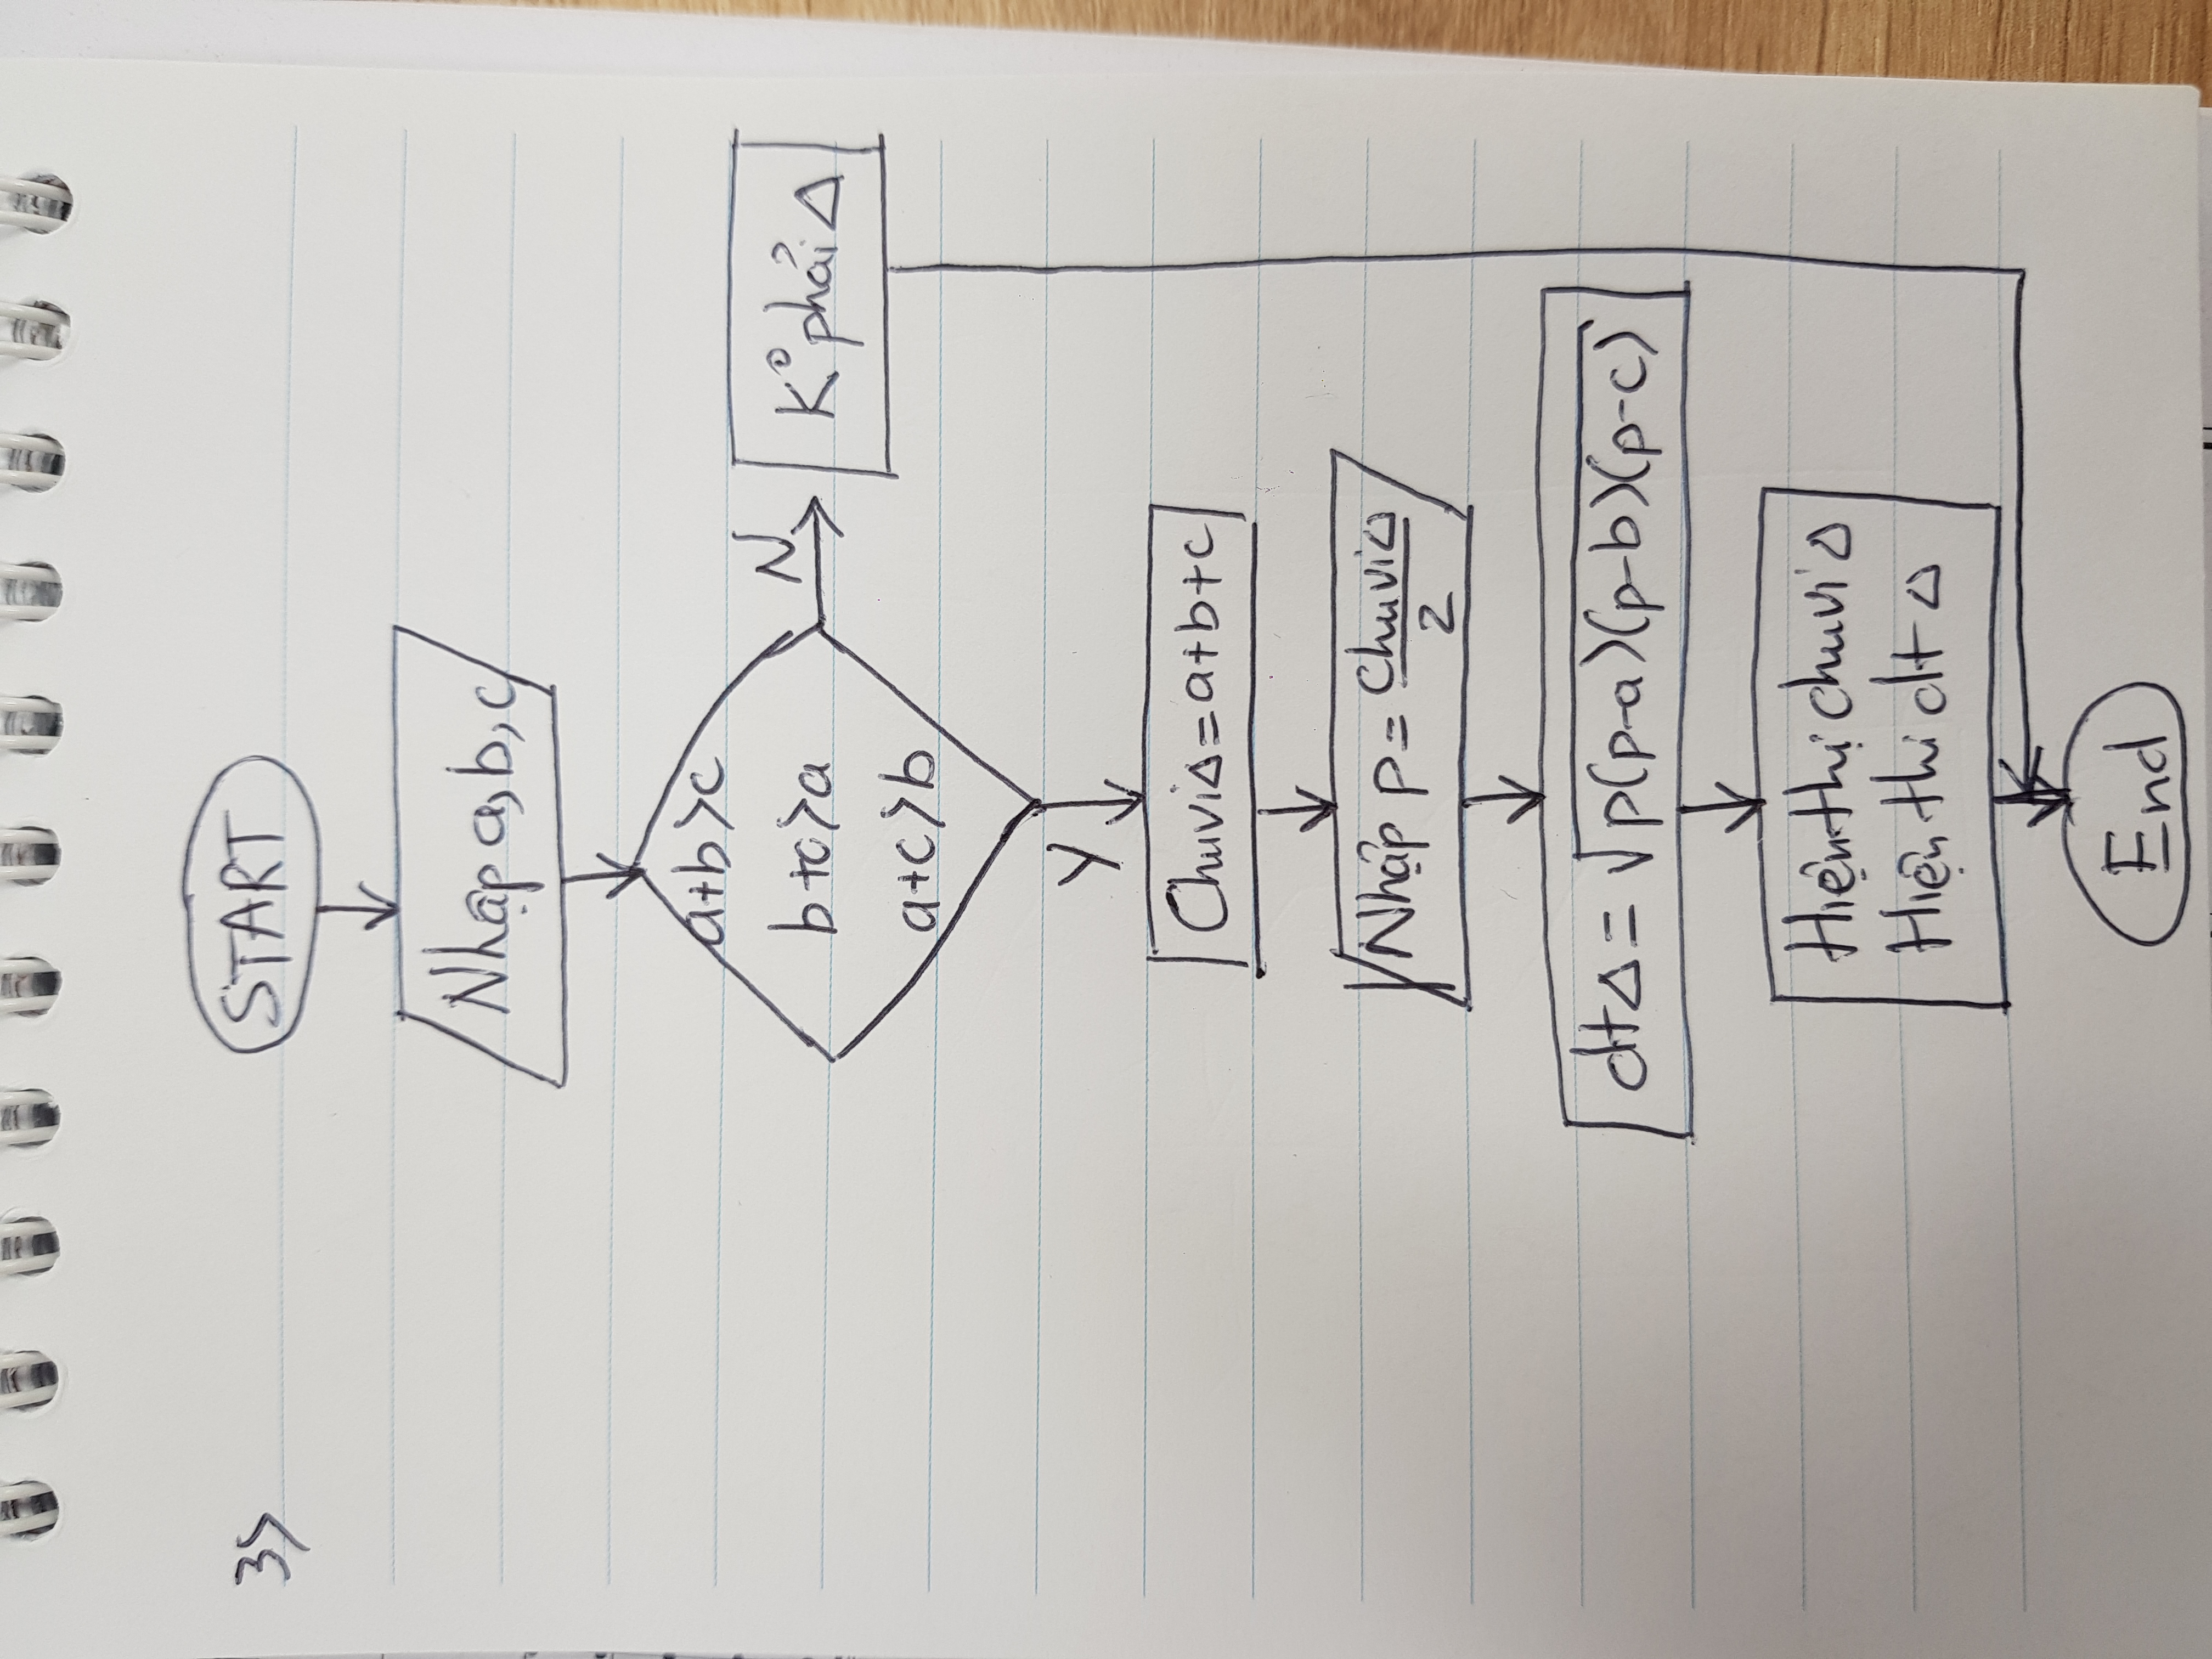 3>
START
Nhập a, b, c
a+b>c
b+c>a
a+c>b
N
K° phải Δ
Y
Chuvi Δ = a+b+c
Nhập p = chuvi Δ / 2
dt Δ = √p(p-a)(p-b)(p-c)
Hiện thị chuvi Δ
Hiện thi dt Δ
End